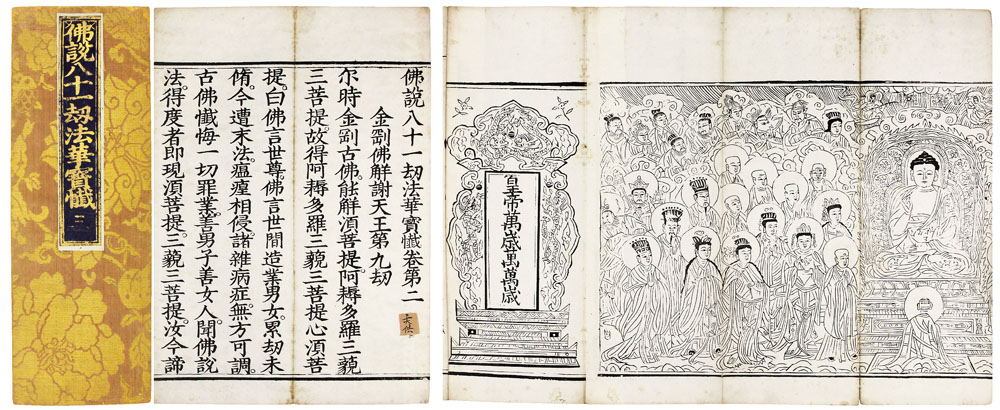 佛說八十一刼法華寶懺
二
佛說八十一刼法華寶懺卷第二
金剛佛觧謝天王第九刼
尒時金剛古佛能觧湏菩提阿耨多羅三藐
三菩提故得阿耨多羅三藐三菩提心湏菩
提白佛言世尊佛言世間造業男女累刼未
脩今遭末法瘟㾮相侵諸雜病症無方可調
古佛懺悔一切罪業善男子善女人聞佛說
法得度者即現湏菩提三藐三菩提汝今諦
皇帝萬歲萬萬歲